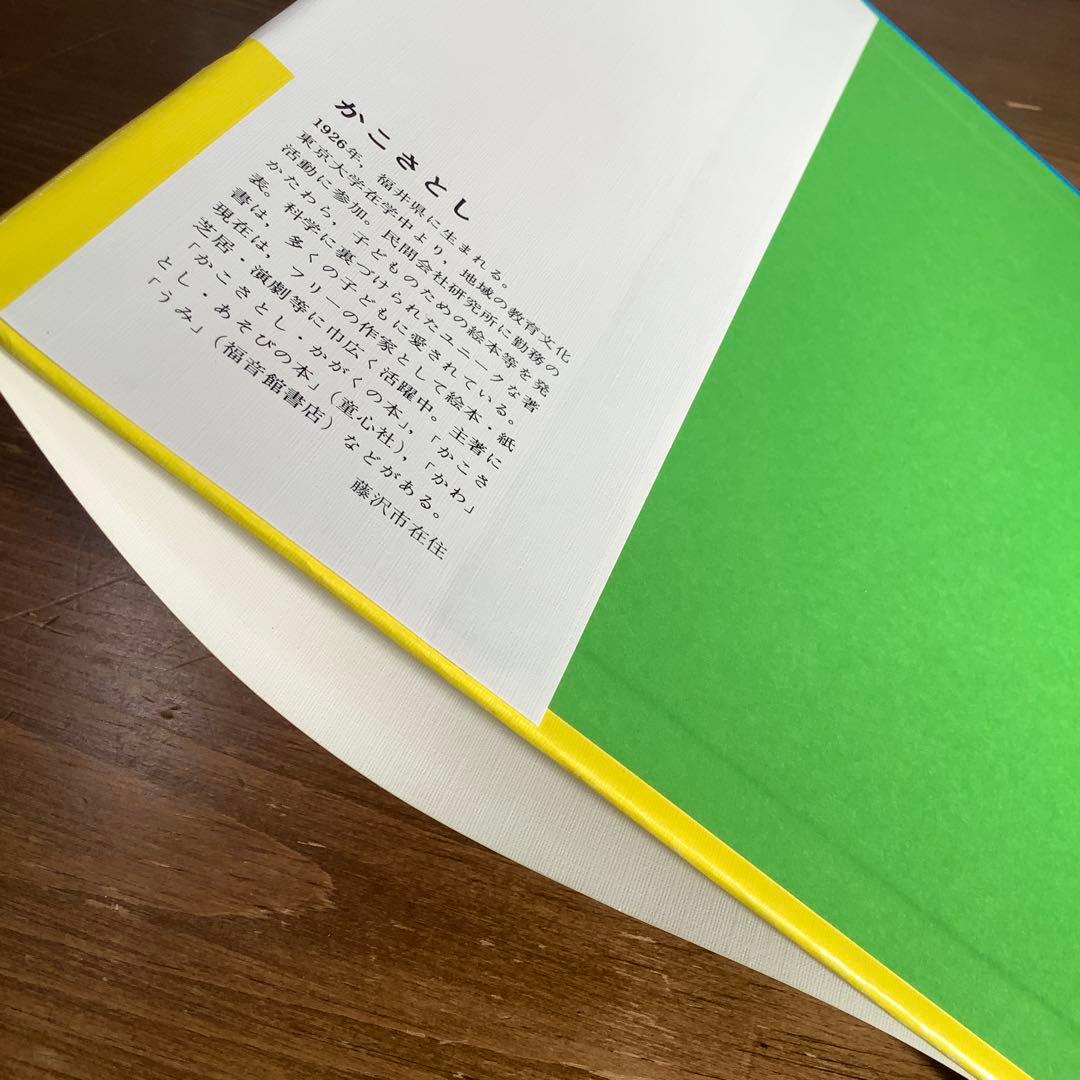 かこさとし
1926年，福井県に生まれる。
東京大学在学中より，地域の教育文化
活動に参加。民間会社研究所に勤務の
かたわら，子どものための絵本等を発
表。科学に裏づけられたユニークな著
書は，多くの子どもに愛されている。
現在は，フリーの作家として絵本・紙
芝居・演劇等に巾広く活躍中。主著に
「かこさとし・かがくの本」，「かこさ
とし・あそびの本」（童心社），「かわ」
「うみ」（福音館書店）などがある。
藤沢市在住